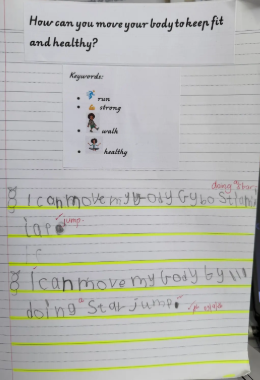 How can you move your body to keep fit
and healthy?
Keywords:
run
strong
walk
healthy
doing a star
I can move my body by
jump
I can move my body by
doing a Star jump.